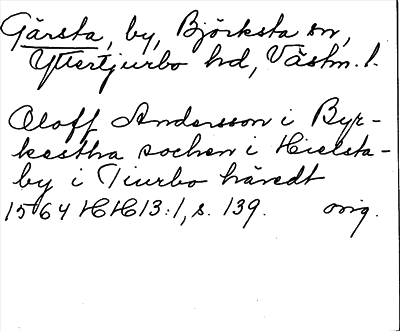 Gärsta, by, Björksta sn,
Yttertjurbo hd, Västm. l.
Oloff Andersson i Byr-
kestha sochen i Hielsta-
by i Tiurbo häredt
1564 HH13:1, s. 139. orig.